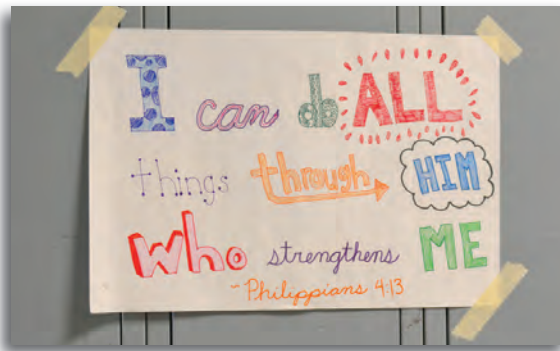 I can do ALL
things through HIM
Who strengthens ME
~Philippians 4:13